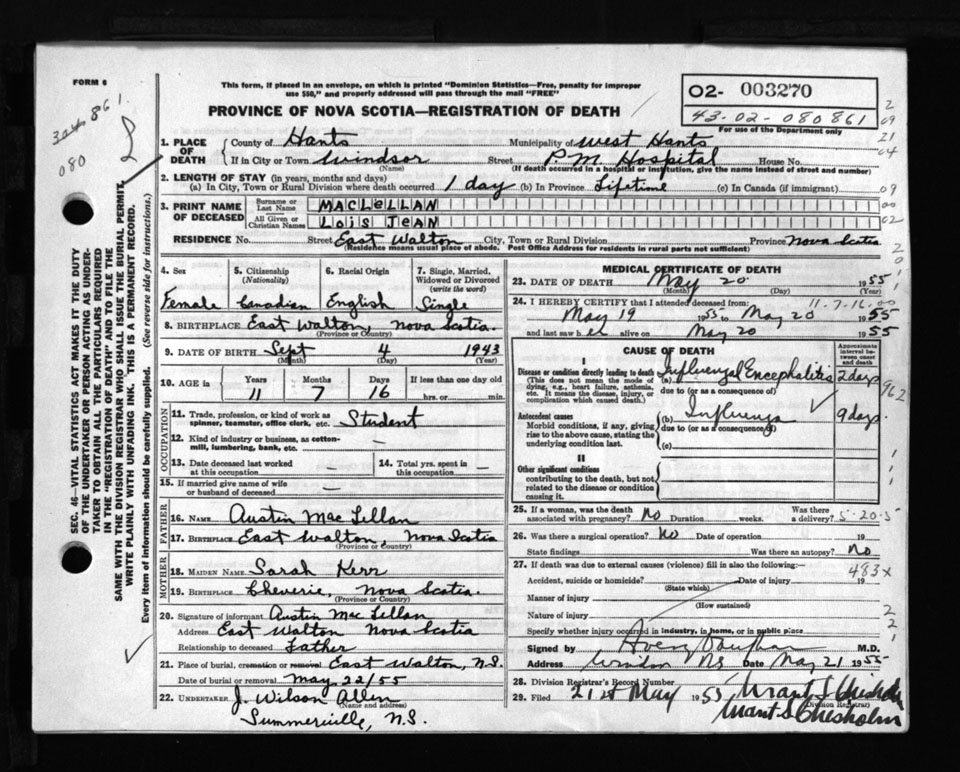 FORM 6
This form, if placed in an envelope, on which is printed "Dominion Statistics—Free, penalty for improper
use $50," and properly addressed will pass through the mail "FREE"
PROVINCE OF NOVA SCOTIA—REGISTRATION OF DEATH
02- 003270
43-02-080861
For use of the Department only
304 861.
080
SEC. 46—VITAL STATISTICS ACT MAKES IT THE DUTY
OF THE UNDERTAKER OR PERSON ACTING AS UNDER-
TAKER TO OBTAIN ALL THE PARTICULARS REQUIRED
IN THE "REGISTRATION OF DEATH" AND TO FILE THE
SAME WITH THE DIVISION REGISTRAR WHO SHALL ISSUE THE BURIAL PERMIT.
WRITE PLAINLY WITH UNFADING INK. THIS IS A PERMANENT RECORD.
Every item of information should be carefully supplied. (See reverse side for instructions.)
1. PLACE OF DEATH County of Hants Municipality of West Hants
If in City or Town Windsor Street P.M. Hospital House No.
(Name) (If death occurred in a hospital or institution, give the name instead of street and number)
2. LENGTH OF STAY (in years, months and days)
(a) In City, Town or Rural Division where death occurred 1 day (b) In Province Lifetime (c) In Canada (if immigrant)
3. PRINT NAME OF DECEASED Surname or Last Name MACLeLLAN
All Given or Christian Names LoiS JeAN
RESIDENCE No. Street East Walton City, Town or Rural Division Province Nova Scotia
(Residence means usual place of abode. Post Office Address for residents in rural parts not sufficient)
4. Sex 5. Citizenship (Nationality) 6. Racial Origin 7. Single, Married, Widowed or Divorced (write the word)
Female Canadian English Single
8. BIRTHPLACE East Walton, Nova Scotia.
(Province or Country)
9. DATE OF BIRTH Sept 4 1943
(Month) (Day) (Year)
10. AGE in Years Months Days If less than one day old
11 7 16 hrs. or min.
OCCUPATION
11. Trade, profession, or kind of work as spinner, teamster, office clerk, etc. Student
12. Kind of industry or business, as cotton-mill, lumbering, bank, etc. —
13. Date deceased last worked at this occupation — 14. Total yrs. spent in this occupation —
15. If married give name of wife or husband of deceased —
FATHER
16. NAME Austin Mac Lellan
17. BIRTHPLACE East Walton, Nova Scotia
(Province or Country)
MOTHER
18. MAIDEN NAME Sarah Kerr
19. BIRTHPLACE Cheverie, Nova Scotia.
(Province or Country)
20. Signature of informant Austin Mac Lellan
Address East Walton Nova Scotia
Relationship to deceased Father
21. Place of burial, cremation or removal East Walton, N.S.
Date of burial or removal May 22/55
22. UNDERTAKER J. Wilson Allen
(Name and address)
Summerville, N.S.
MEDICAL CERTIFICATE OF DEATH
23. DATE OF DEATH May 20 1955
(Month) (Day) (Year)
24. I HEREBY CERTIFY that I attended deceased from: 11-7-16-00
May 19 1955 to May 20 1955
and last saw her alive on May 20 1955
CAUSE OF DEATH
Approximate interval between onset and death
I
Disease or condition directly leading to death (a) Influenzal Encephalitis 2 days
(This does not mean the mode of dying, e.g., heart failure, asthenia, etc. It means the disease, injury, or complication which caused death.)
due to (or as a consequence of)
962
Antecedent causes (b) Influenza 9 days
Morbid conditions, if any, giving rise to the above cause, stating the underlying condition last.
due to (or as a consequence of)
(c)
II
Other significant conditions
contributing to the death, but not related to the disease or condition causing it.
25. If a woman, was the death associated with pregnancy? No Duration weeks. Was there a delivery? 5-20-5
26. Was there a surgical operation? No Date of operation 19
State findings Was there an autopsy? No
27. If death was due to external causes (violence) fill in also the following:— 483x
Accident, suicide or homicide? Date of injury 19
(State which)
Manner of injury
(How sustained)
Nature of injury
Specify whether injury occurred in industry, in home, or in public place
Signed by Avery Vaughan M.D.
Address Windsor NS Date May 21 1955
28. Division Registrar's Record Number
29. Filed 21st May 1955 Grant S Chisholm
(Division Registrar)
Grant S. Chisholm